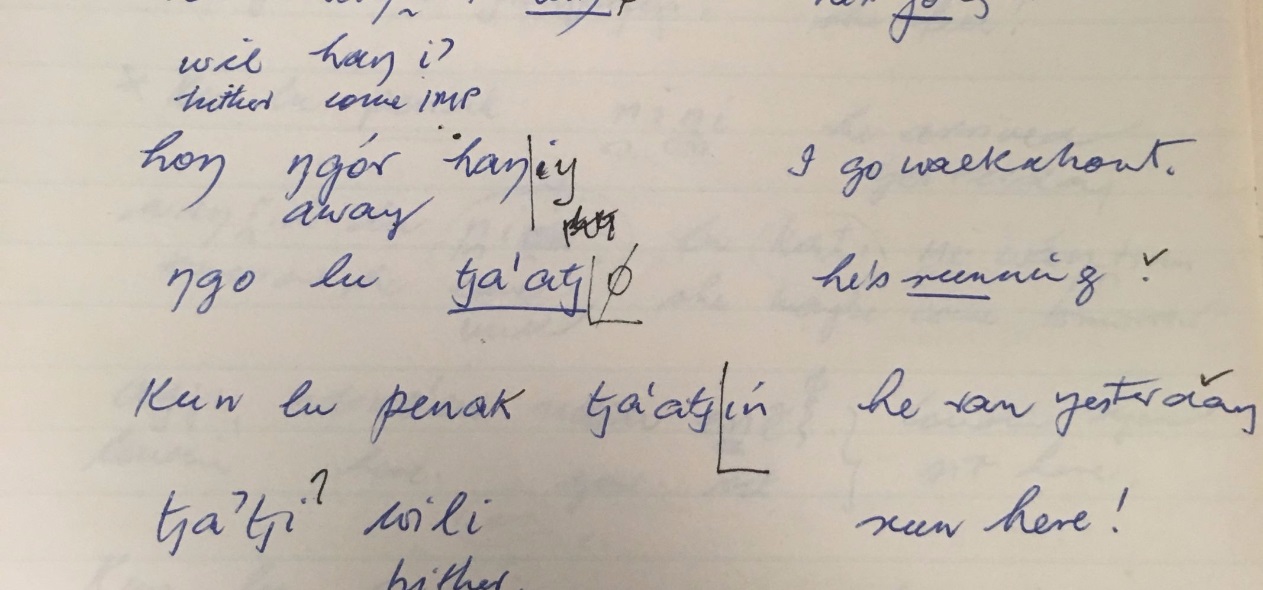 wil haŋ iʔ
hither come IMP
hoŋ ŋgór haŋ|iy I go walkabout.
away
ŋgo lu tja'atj|ø he's running ?
Kun lu penak tjá'atj|iń he ran yesterday
tjaʔtjiʔ wili run here!
hither.